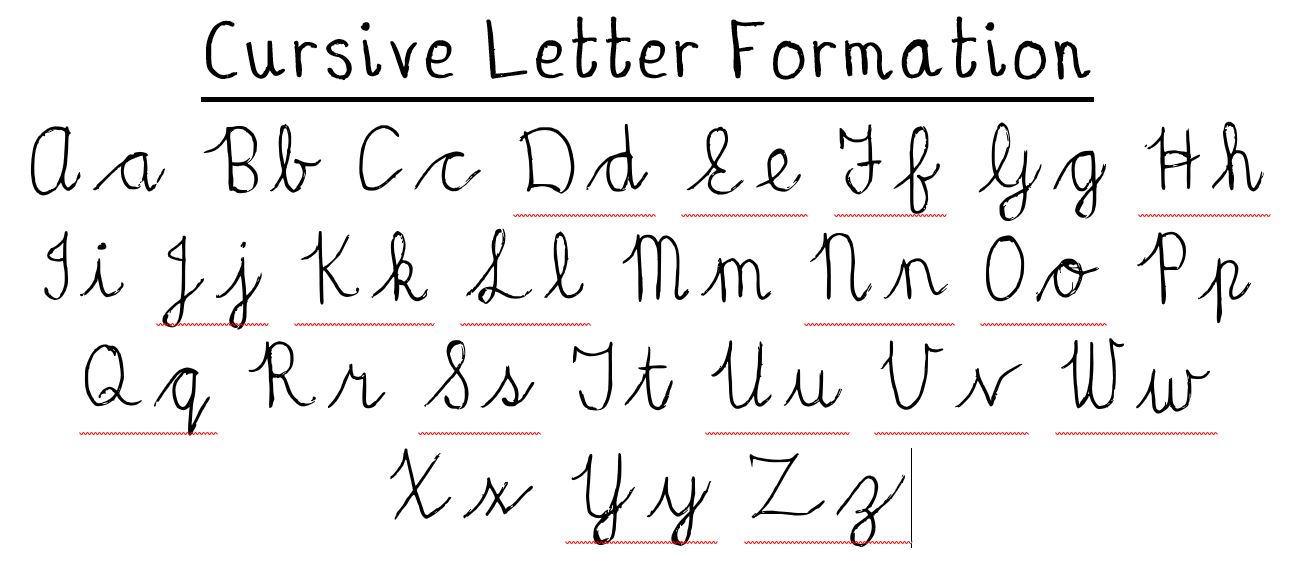 Cursive Letter Formation
Aa Bb Cc Dd Ee Ff Gg Hh
Ii Jj Kk Ll Mm Nn Oo Pp
Qq Rr Ss Tt Uu Vv Ww
Xx Yy Zz